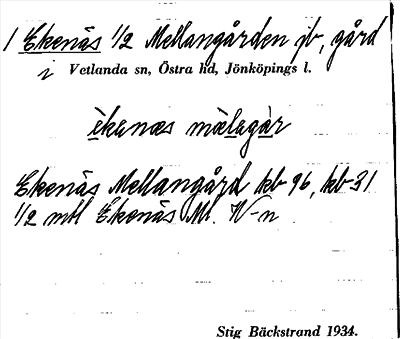 1 Ekenäs 1/2 Mellangården jb, gård
i Vetlanda sn, Östra hd, Jönköpings l.
èkenæs mælagàr
Ekenäs Mellangård kb 96, kb 31
1/2 mtl Ekenäs Ml. N-n
Stig Bäckstrand 1934.